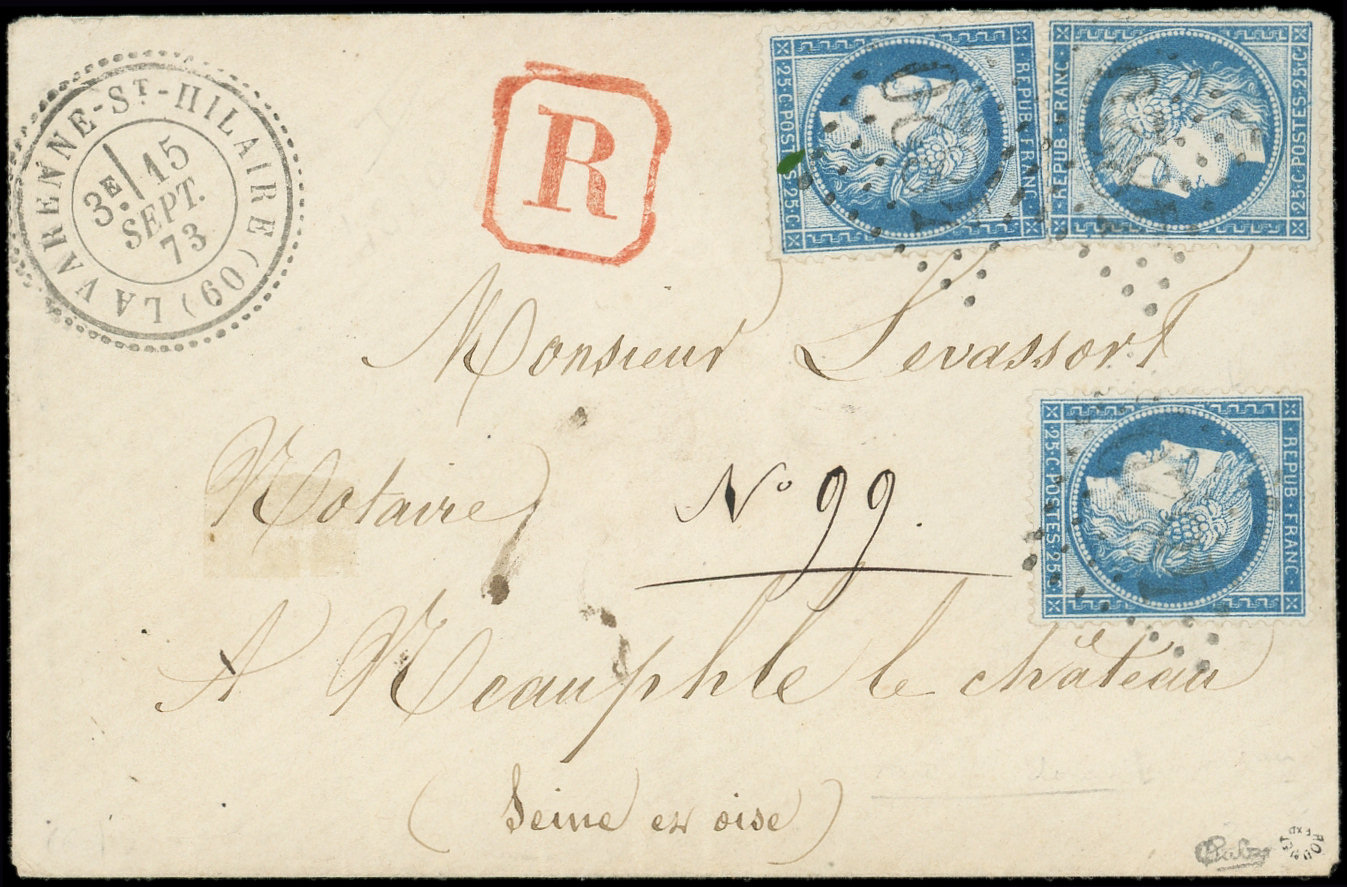 LA VARENNE-ST-HILAIRE (60)
3E 15
SEPT.
73
R
REPUB·FRANC·
25·C·POSTES·25·C
REPUB·FRANC·
25·C·POSTES·25·C
Monsieur Levassort
REPUB·FRANC·
25·C·POSTES·25·C
Notaire
No 99.
A Neauphle le château
(Seine et oise)